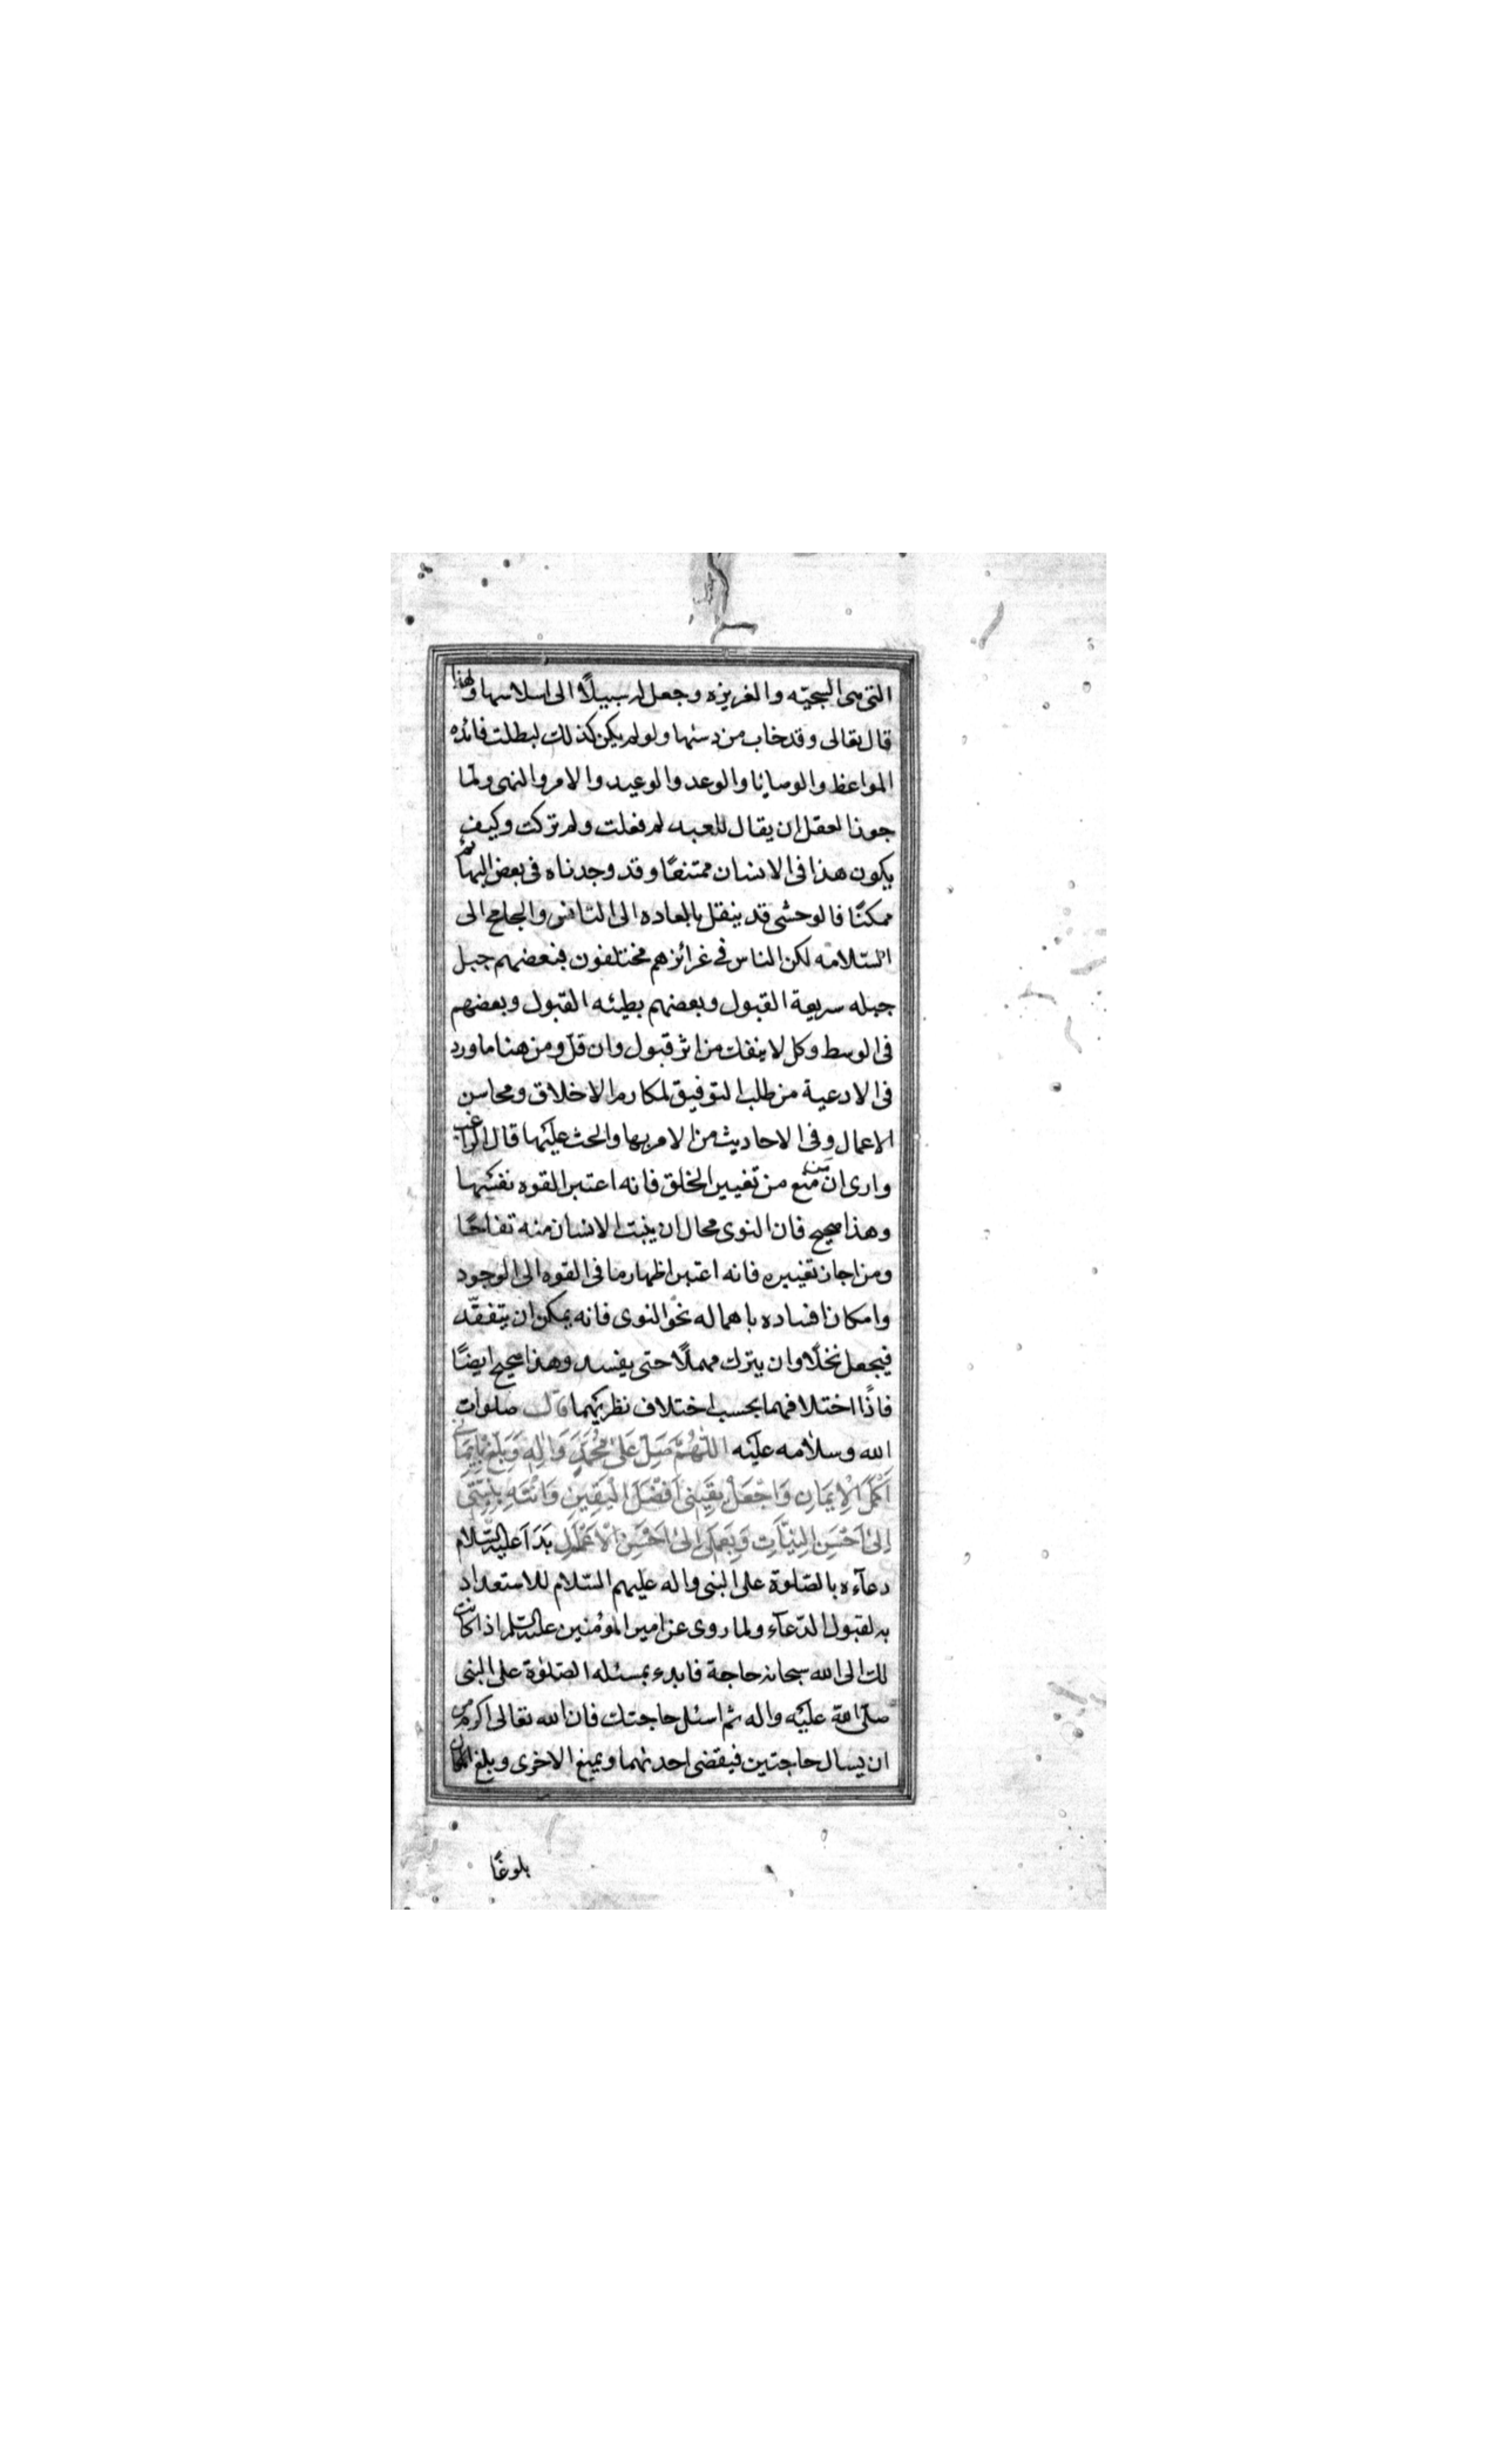 التى هى السجيّه والغريزه وجعل له سبيلًا الى اسلاسها ولهذا
قال تعالى وقد خاب من دسّٰها ولو لم يكن كذلك لبطلت فائده
المواعظ والوصايا والوعد والوعيد والامر والنهى ولمّا
جوز العقل ان يقال للعبد لم فعلت ولم تركت وكيف
يكون هذا فى الانسان ممتنعًا وقد وجدناه فى بعض البهائم
ممكنًا فالوحشى قد ينقل بالعاده الى التانس والجامح الى
السّلامه لكن الناس فى غرائزهم مختلفون فبعضهم جبل
جبله سريعة القبول وبعضهم بطيئه القبول وبعضهم
فى الوسط وكل لا ينفك من اثر قبول وان قلّ ومن هنا ما ورد
فى الادعية من طلب التوفيق لمكارم الاخلاق ومحاسن
الاعمال وفى الاحاديث من الامر بها والحث عليها قال الراغب
وارى ان من منع من تغيير الخلق فانه اعتبر القوه نفسها
وهذا صحيح فان النوى محال ان ينبت الانسان منه تفاحًا
ومن اجاز تغييره فانه اعتبر اظهار ما فى القوه الى الوجود
وامكان افساده باهماله نحو النوى فانه يمكن ان يتفقّد
فيجعل نخلًا وان يترك مهملًا حتى يفسد وهذا صحيح ايضًا
فاذًا اختلافهما بحسب اختلاف نظريهما قال صلوات
الله وسلامه عليه اللّٰهُمَّ صَلِّ عَلىٰ مُحَمَّدٍ وَاٰلِهٖ وَبَلِّغْ بِاِيمَانى
اَكْمَلَ الْاِيمَانِ وَاجْعَلْ يَقِينى اَفْضَلَ الْيَقِينِ وَانْتَهِ بِنِيَّتى
اِلىٰ اَحْسَنِ النِيَّاتِ وَبِعَمَلى اِلىٰ اَحْسَنِ الْاَعْمَالِ بَدَأ عليه السّلام
دعآءه بالصّلوة على النبى واله عليهم السّلام للاستعداد
به لقبول الدّعآء ولما روى عن امير المؤمنين عليه السّلم اذا كانت
لك الى الله سبحانه حاجة فابدء بمسئله الصّلوٰة على النبى
صلّى الله عليه واله ثم اسئل حاجتك فان الله تعالى اكرم من
ان يسال حاجتين فيقضى احدٰيهما ويمنع الاخرى وبلغ المكان
بلوغًا